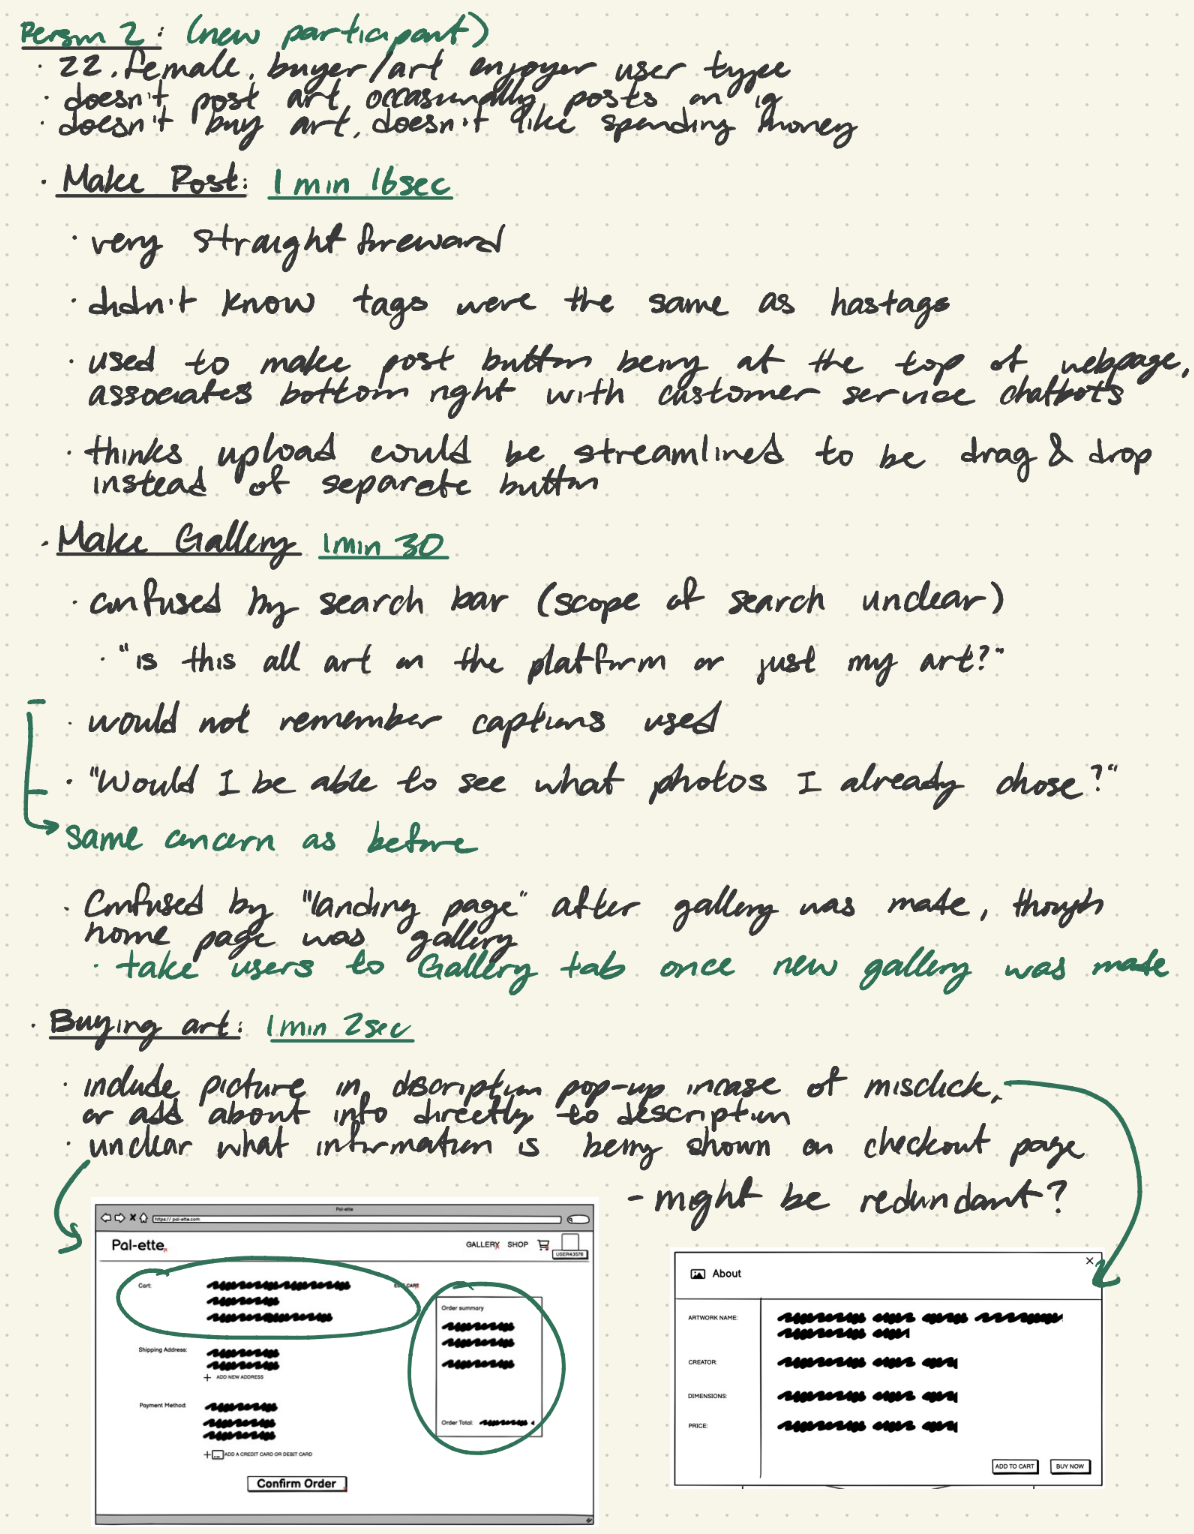 Person 2: (new participant)
· 22, female, buyer/art enjoyer user type
· doesn't post art, occasionally posts on ig
· doesn't buy art, doesn't like spending money
· Make Post: 1 min 16sec
· very straight foreward
· didn't know tags were the same as hastags
· used to make post button being at the top of webpage,
associates bottom right with customer service chatbots
· thinks upload could be streamlined to be drag & drop
instead of separate button
· Make Gallery 1min 30
· confused by search bar (scope of search unclear)
· "is this all art on the platform or just my art?"
· would not remember captions used
· "Would I be able to see what photos I already chose?"
same concern as before
· Confused by "landing page" after gallery was made, though
home page was gallery
· take users to Gallery tab once new gallery was made
· Buying art: 1 min 2sec
· include picture in discription pop-up incase of misclick,
or add about info directly to description
· unclear what information is being shown on checkout page
- might be redundant?
Pal-ette
https://pal-ette.com
Pal-ette
GALLERY SHOP
USER43578
Cart:
EDIT CART
Order summary
Shipping Address:
+ ADD NEW ADDRESS
Payment Method:
Order Total:
+ ADD A CREDIT CARD OR DEBIT CARD
Confirm Order
About
ARTWORK NAME:
CREATOR:
DIMENSIONS:
PRICE:
ADD TO CART BUY NOW